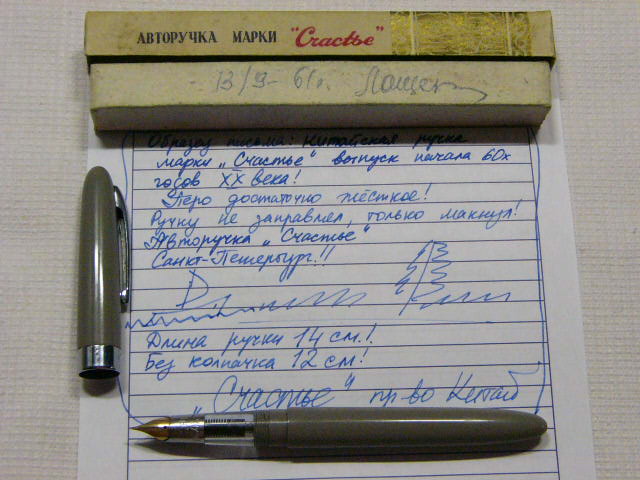 АВТОРУЧКА МАРКИ "Счастье"
13/9- 61г.
Образец письма: Китайская ручка
марки „Счастье" выпуск начала 60х
годов XX века!
Перо достаточно жёсткое!
Ручку не заправлял, только макнул!
Авторучка „Счастье"
Санкт-Петербург!!
Длина ручки 14 см.!
Без колпачка 12 см!
„Счастье" пр-во Китай